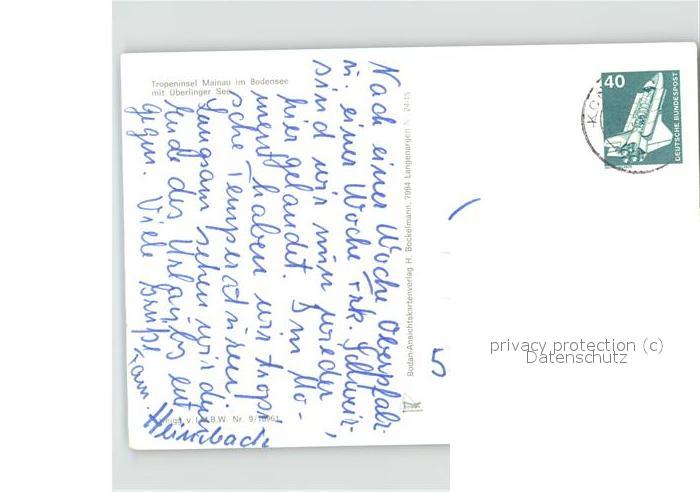 Tropeninsel Mainau im Bodensee
mit Überlinger See
Nach einer Woche Oberpfalz
u. einer Woche frk. Schweiz
sind wir nun wieder
hier gelandet. Im Mo-
ment haben wir tropi-
sche Temperaturen.
Langsam sehen wir dem
Ende des Urlaubs ent-
gegen. Viele Grüße
Fam. Heimbach
Bodan-Ansichtskartenverlag H. Bockelmann, 7994 Langenargen
40
DEUTSCHE BUNDESPOST
KON
5
privacy protection (c)
Datenschutz